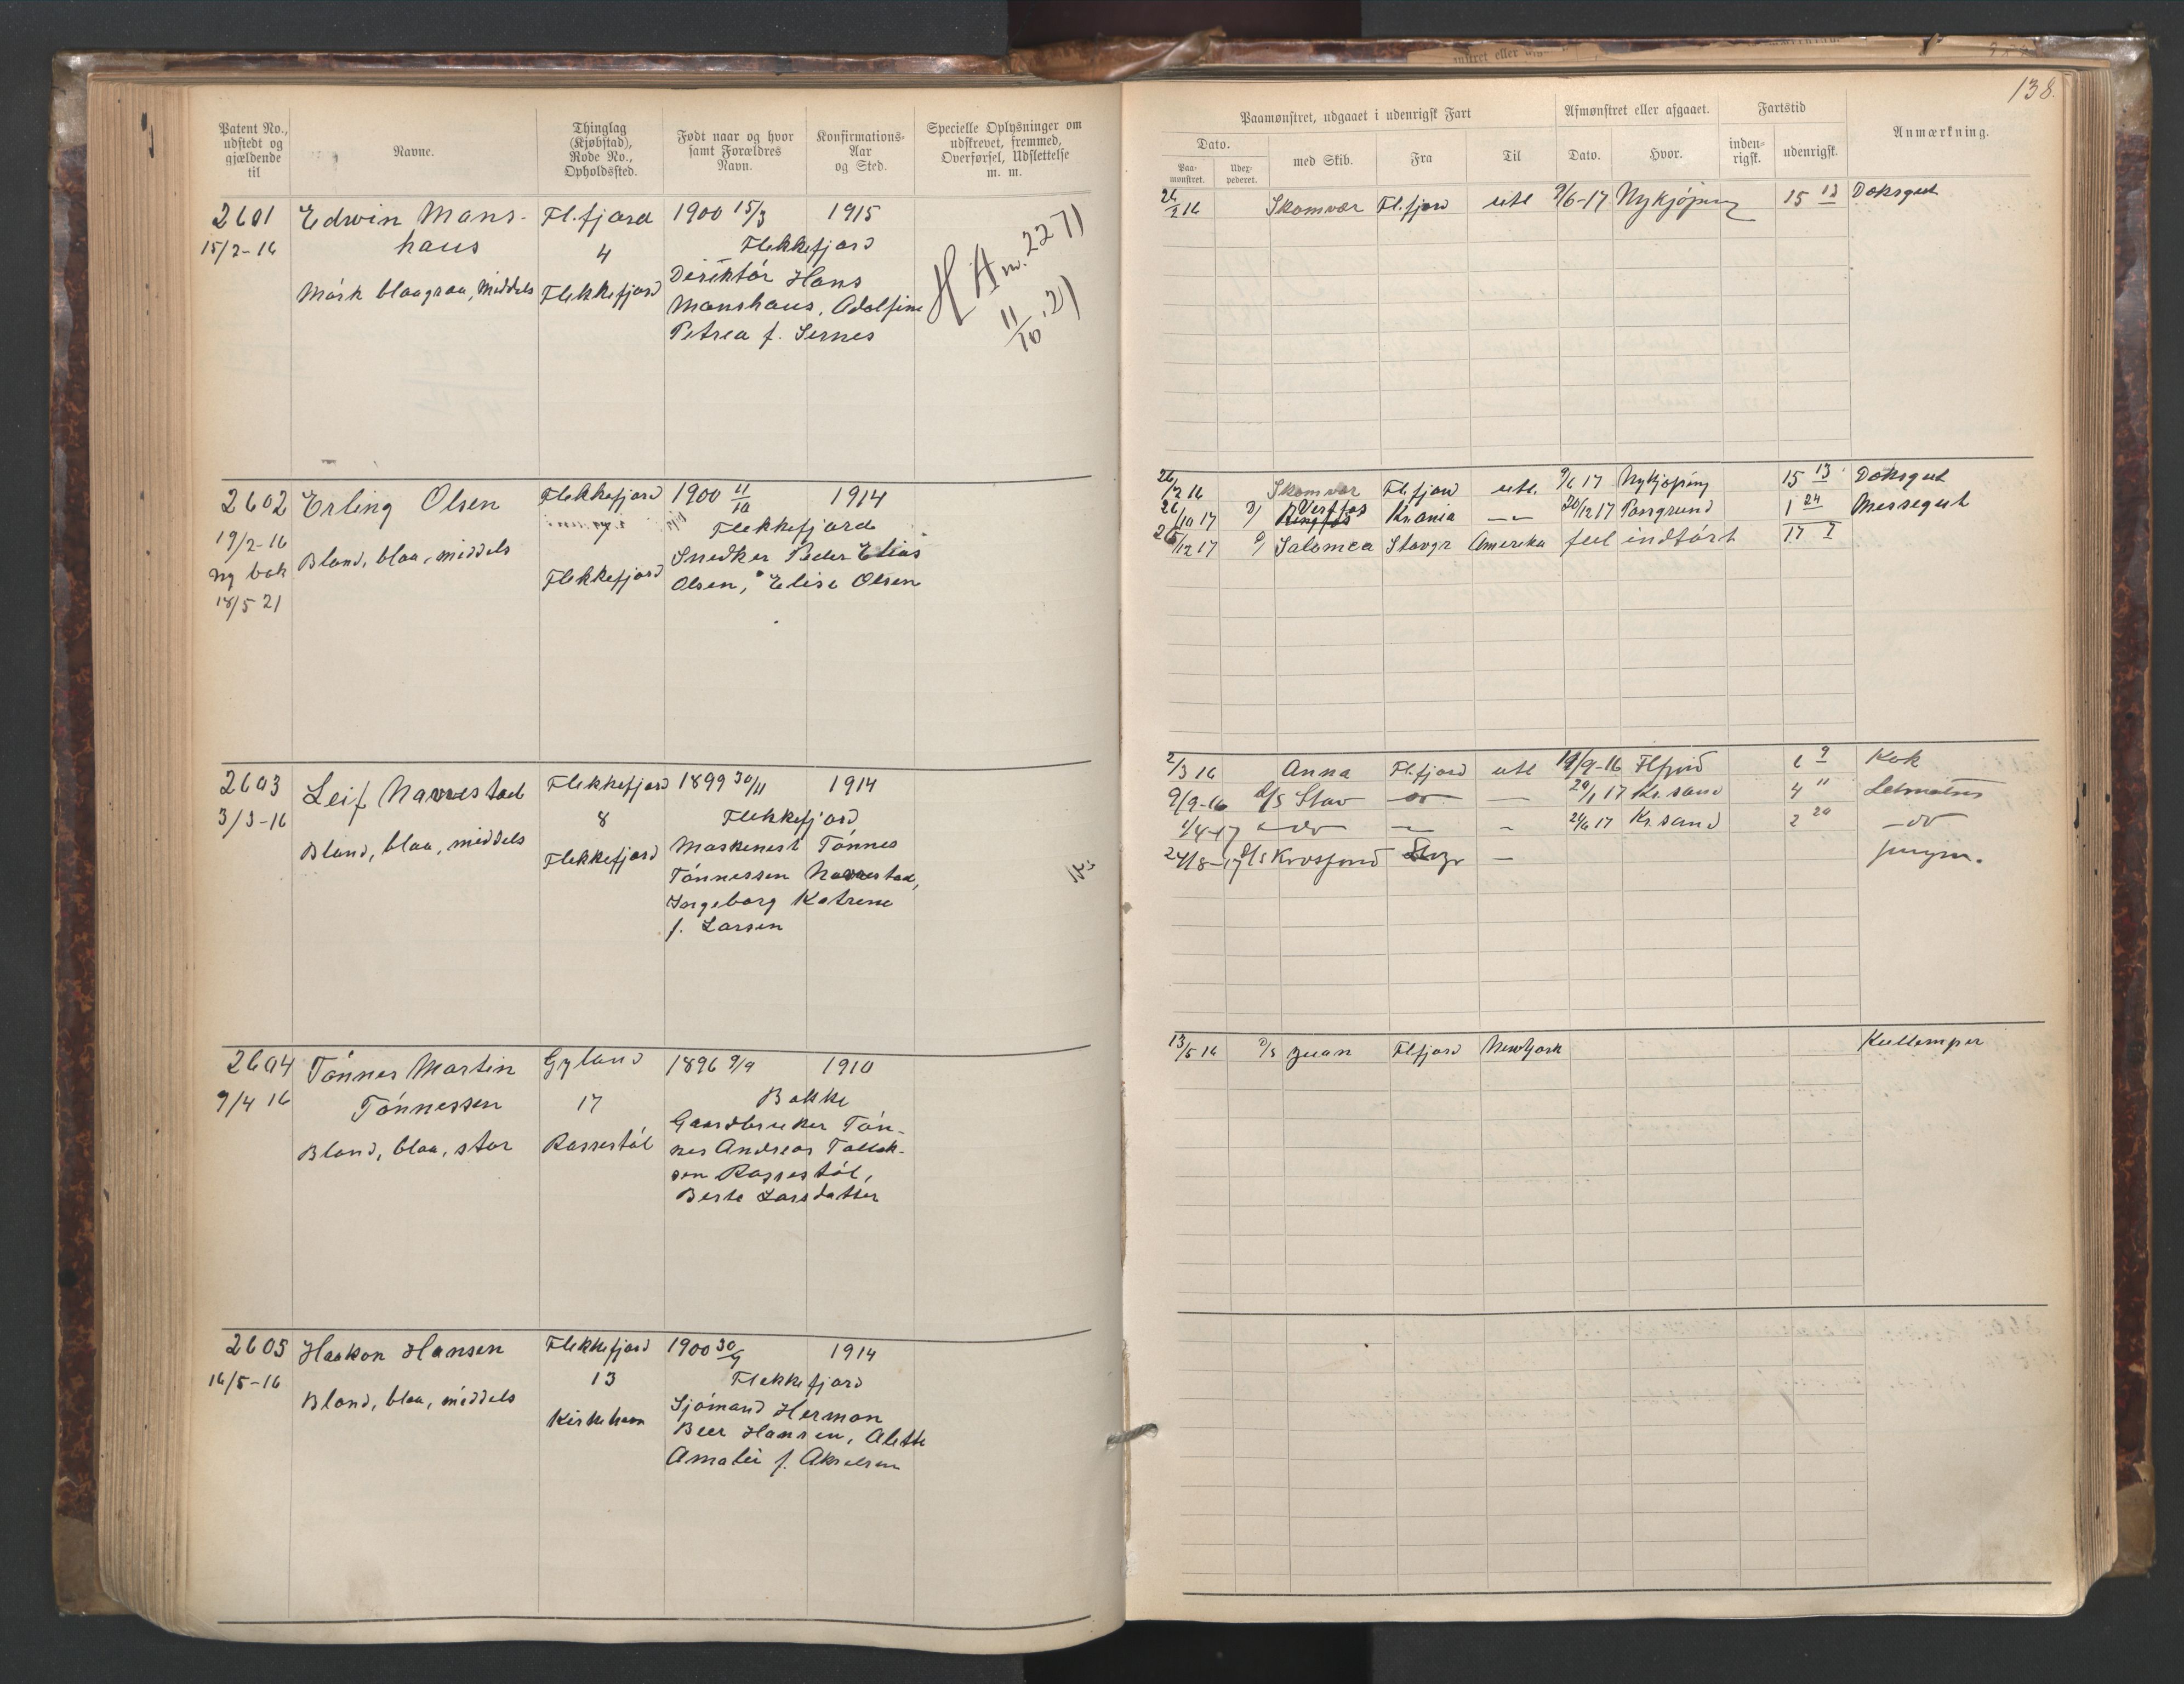 138.
Patent No., udstedt og gjældende til
Navne.
Thinglag (Kjøbstad), Rode No., Opholdssted.
Født naar og hvor samt Forældres Navn.
Konfirmations-Aar og Sted.
Specielle Oplysninger om udskrevet, fremmed, Overførsel, Udslettelse m. m.
Paamønstret, udgaaet i udenrigsk Fart
Afmønstret eller afgaaet.
Fartstid
Anmærkning.
Dato.
Paa-mønstret.
Udex-pederet.
med Skib.
Fra
Til
Dato.
Hvor.
inden-rigsk.
udenrigsk.
2601 Edwin Mans- Fl.fjord 1900 15/3 1915
15/2-16 haus 4 Flekkefjord
Mörk blaagraa, middels Flekkefjord Direktör Hans
Manshaus, Adolfine
Petrea f. Sernes
H A nr. 2271
11/10 21
26/2 16 Skomvær Fl.fjord utl 9/6-17 Nykjöping 15 13 Doksgut
2602 Erling Olsen Flekkefjord 1900 11/10 1914
19/2-16 Flekkefjord
ny bok Bland, blaa, middels Flekkefjord Snedker Peder Elias
18/5 21 Olsen, Elise Olsen
26/2 16 Skomvær Fl.fjord utl. 9/6 17 Nykjöping 15 13 Doksgut
26/10 17 D/ Vestfos Kr.ania -"- 20/12 17 Porsgrund 1 24 Messegut
26/12 17 D/ Salomea Stavgr Amerika feil indfört 17 7
2603 Leif Navrestad Flekkefjord 1899 30/11 1914
3/3-16 8 Flekkefjord
Bland, blaa, middels Flekkefjord Maskinest Tönnes
Tönnessen Navrestad,
Ingeborg Katrine
f. Larsen
2/3 16 Anna Fl.fjord utl 19/9-16 Flfjord 6 9 Kok
9/9-16 D/S Stav -do- — 20/1 17 Kr.sand 4 11 Letmatros
1/4-17 -do- — - 24/6 17 Kr.sand 2 20 -do-
24/8-17 D/S Krosfond Stvgr — jungm.
2604 Tönnes Martin Gyland 1896 9/9 1910
9/4 16 Tönnessen 17 Bakke
Bland, blaa, stor Rassestöl Gaardbruker Tön-
nes Andreas Tollak-
sen Rassestöl,
Berte Larsdatter
13/5 16 D/S Juan Flfjord NewYork Kullemper
2605 Haakon Hansen Flekkefjord 1900 30/9 1914
16/5-16 13 Flekkefjord
Bland, blaa, middels Kirkehavn Sjömand Herman
Beer Hansen, Alette
Amalie f. Akselsen